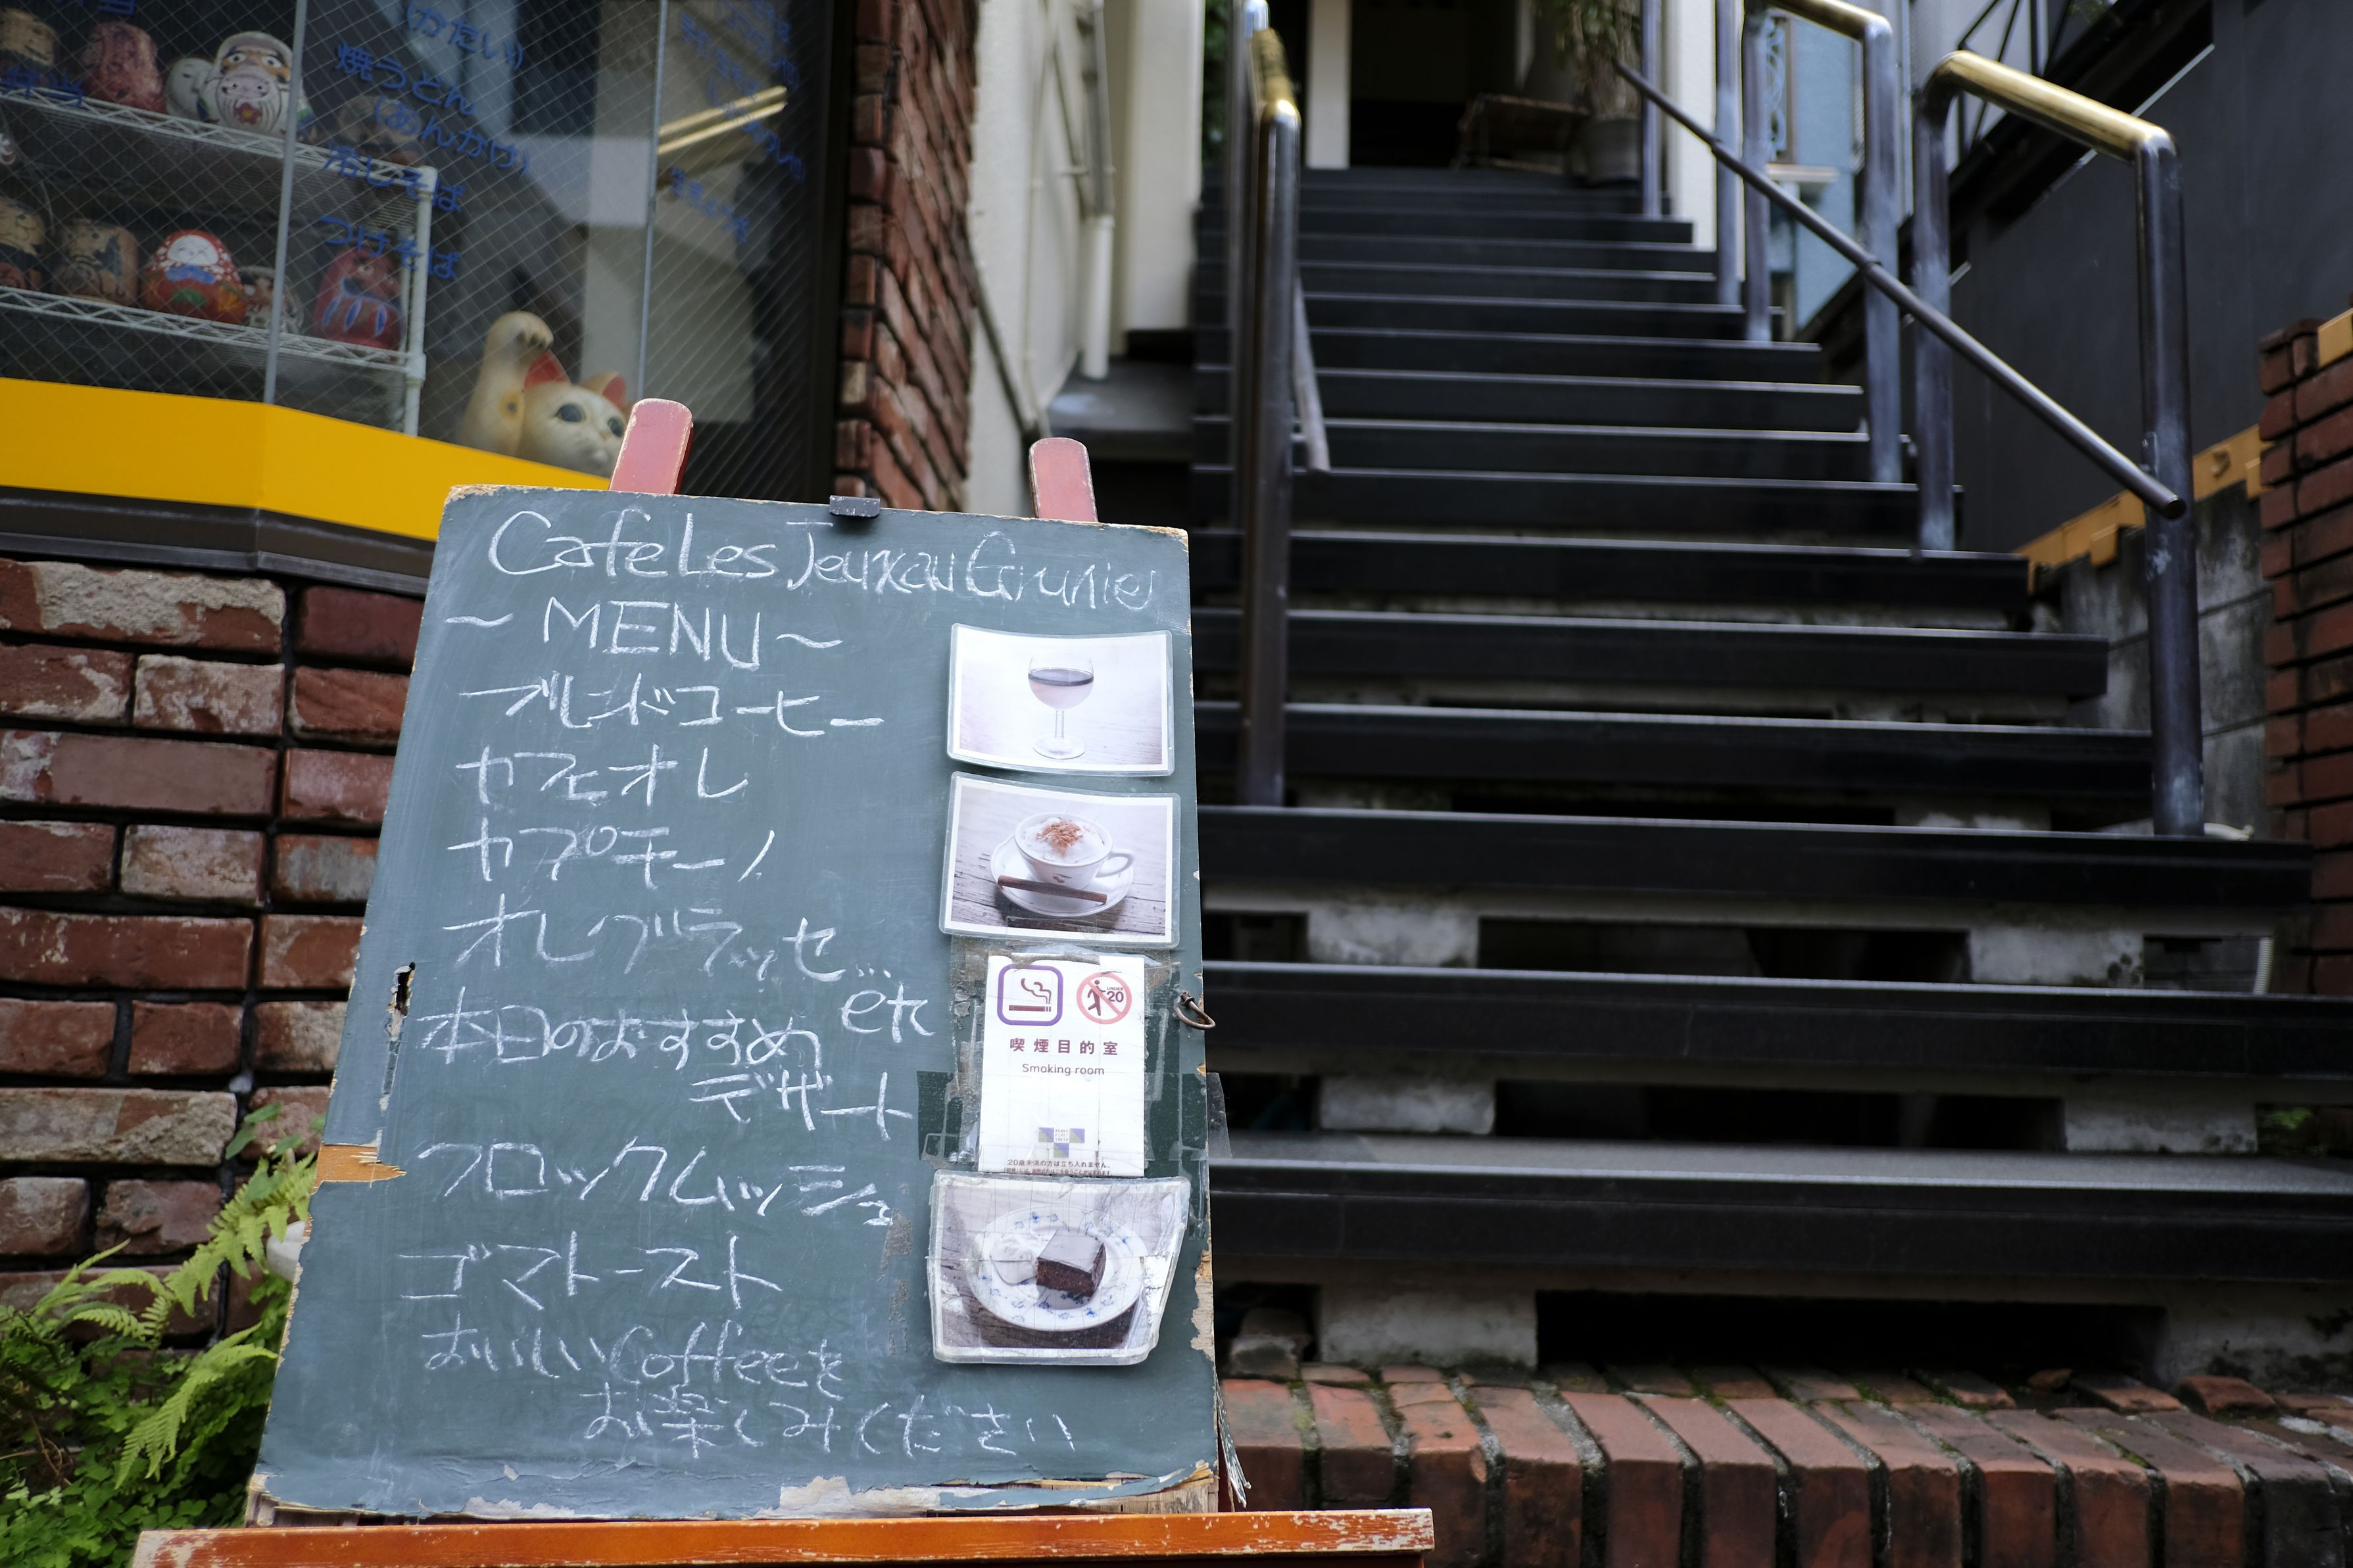 弁当
弁当
(かたい)
焼うどん
(あんかけ)
冷しそば
つけそば
Cafe Les Jeux au Grenier
~ MENU ~
ブレンドコーヒー
カフェオレ
カプチーノ
オレグラッセ...
etc
本日のおすすめ
デザート
クロックムッシュ
ゴマトースト
おいしいCoffeeを
お楽しみください
UNDER 20
喫煙目的室
Smoking room
20歳未満の方は立ち入れません。